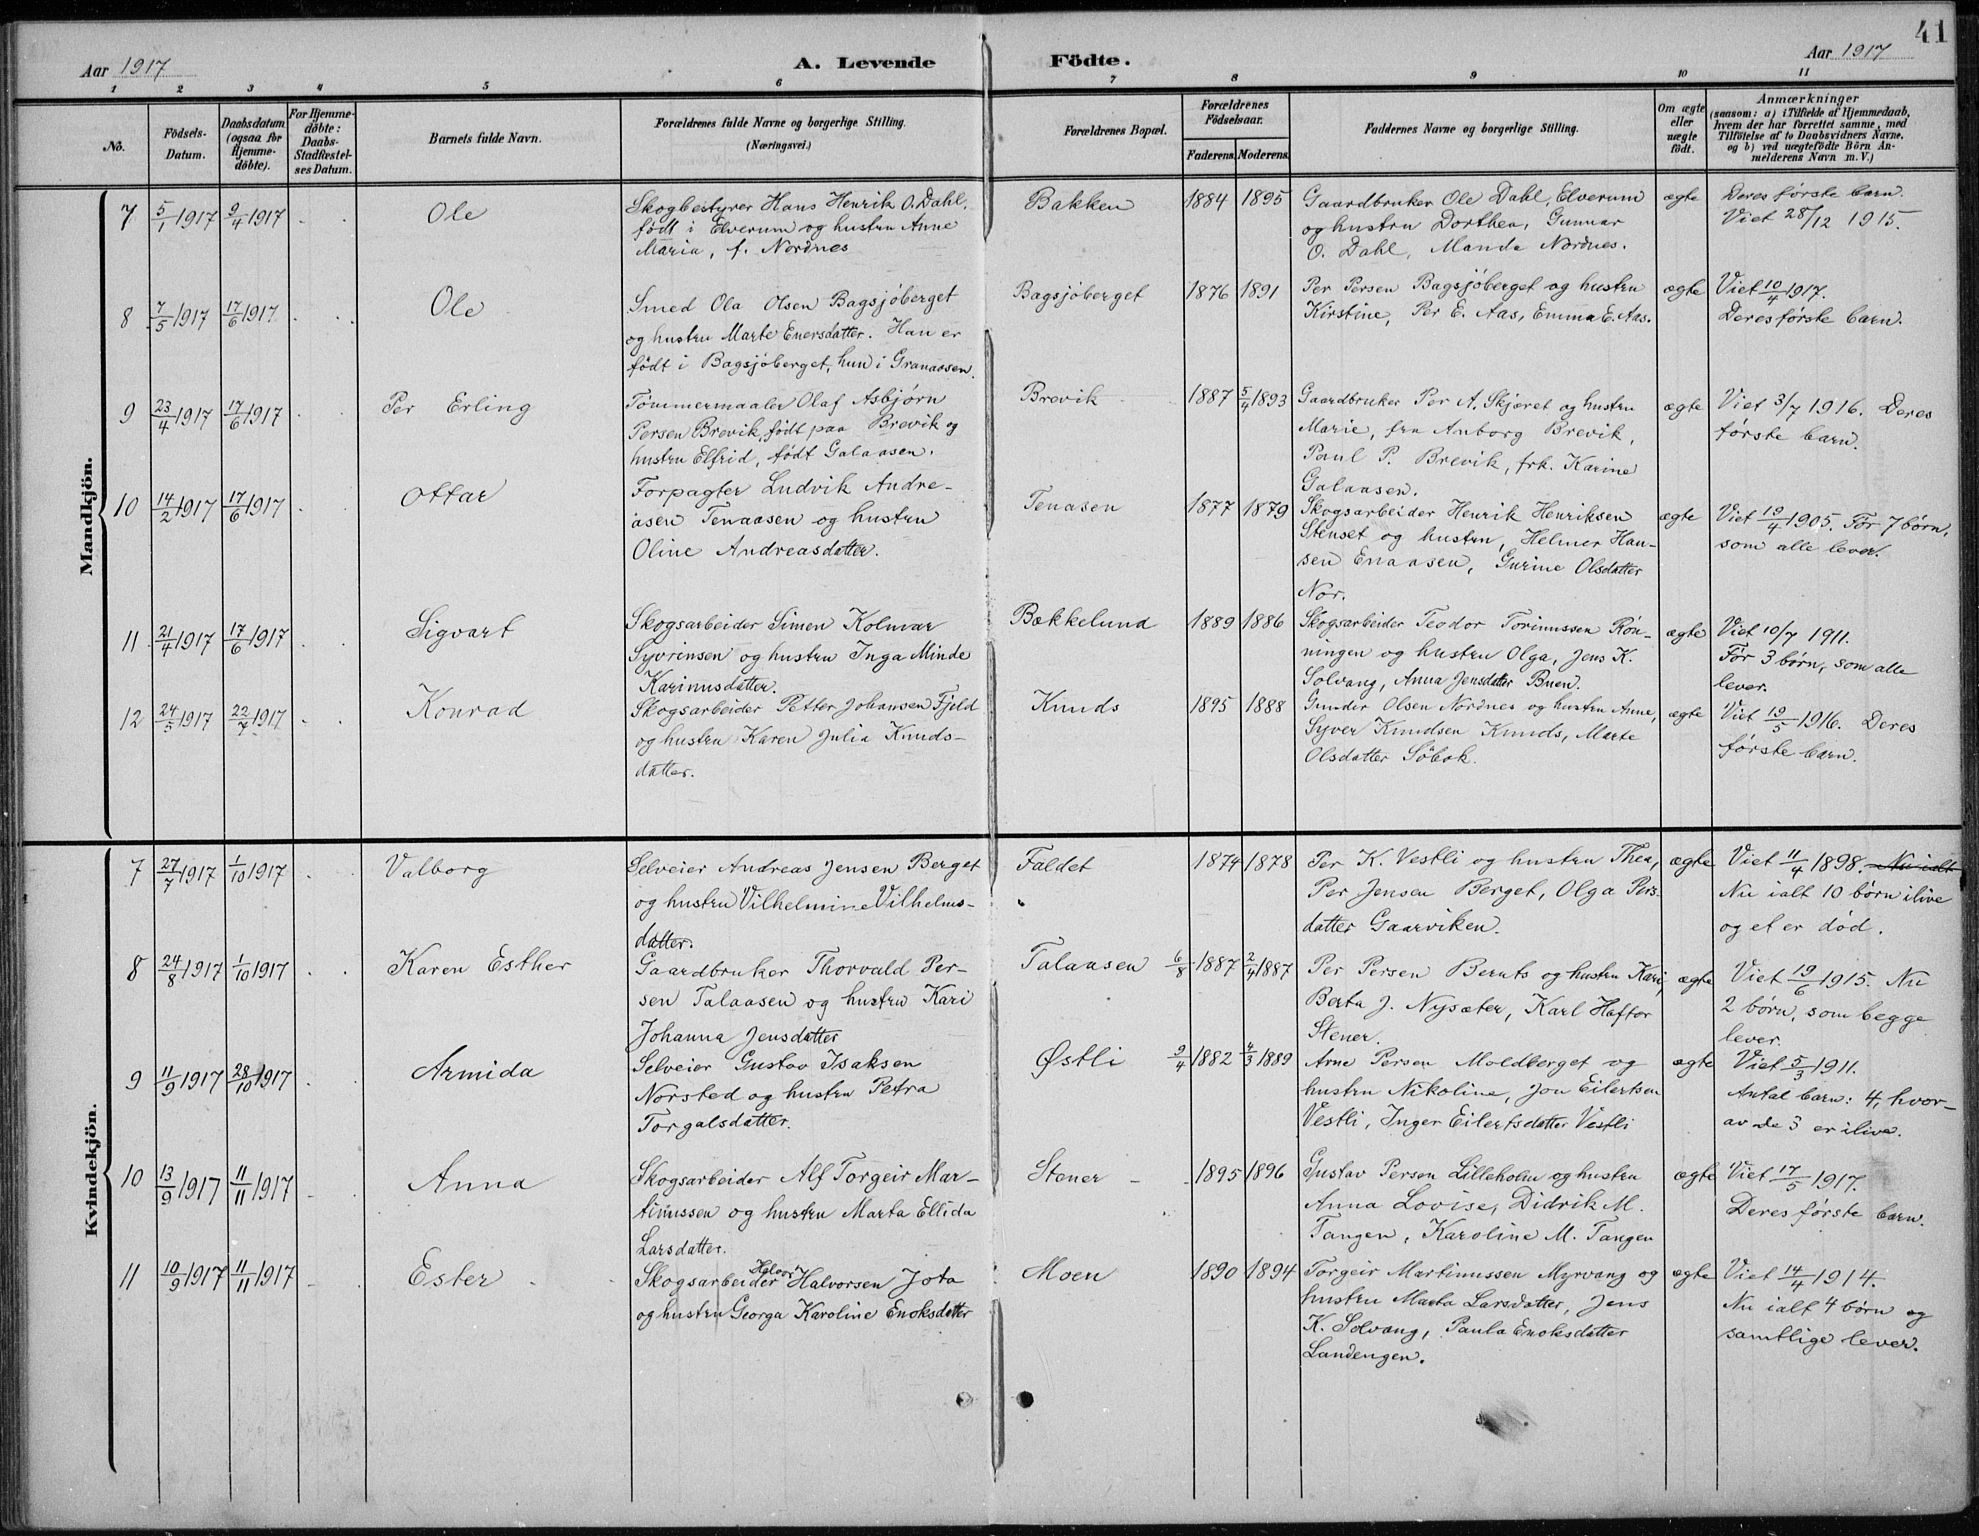 41
Aar 1917
A. Levende Födte.
Aar 1917
1 2 3 4 5 6 7 8 9 10 11
No.
Födsels-
Datum.
Daabsdatum
(ogsaa for
Hjemme-
döbte).
For Hjemme-
döbte:
Daabs-
Stadfæstel-
ses Datum.
Barnets fulde Navn.
Forældrenes fulde Navne og borgerlige Stilling.
(Næringsvei.)
Forældrenes Bopæl.
Forældrenes
Födselsaar.
Faderens. Moderens.
Faddernes Navne og borgerlige Stilling.
Om ægte
eller
uægte
födt.
Anmærkninger
(saasom: a) i Tilfælde af Hjemmedaab,
hvem der har forrettet samme, med
Tilföielse af to Daabsvidners Navne.
og b) ved uægtefödte Börn An-
melderens Navn m. V.)
Mandkjön.
7 5/1 1917 9/4 1917 Ole
Skogbestyrer Hans Henrik O. Dahl,
født i Elverum og hustru Anne
Maria, f. Nordnes
Bakken 1884 1895
Gaardbruker Ole Dahl, Elverum
og hustru Dorthea, Gunnar
O. Dahl, Manda Nordnes.
ægte
Deres første barn.
Viet 28/12 1915.
8 7/5 1917 17/6 1917 Ole
Smed Ola Olsen Bagsjøberget
og hustru Marte Enersdatter. Han er
født i Bagsjøberget, hun i Granaasen.
Bagsjøberget 1876 1891
Per Persen Bagsjøberget og hustru
Kirstine, Per E. Aas, Emma E. Aas.
ægte
Viet 10/4 1917.
Deres første barn.
9 23/4 1917 17/6 1917 Per Erling
Tømmermaaler Olaf Asbjørn
Persen Brevik, født paa Brevik og
hustru Elfrid, født Galaasen.
Brevik 1887 5/4 1893
Gaardbruker Per A. Skjæret og hustru
Marie, fru Anborg Brevik,
Paul P. Brevik, frk. Karine
Galaasen.
ægte
Viet 3/7 1916. Deres
første barn.
10 14/2 1917 17/6 1917 Ottar
Forpagter Ludvik Andre-
asen Tenaasen og hustru
Oline Andreasdatter.
Tenasen 1877 1879
Skogsarbeider Henrik Henriksen
Stenset og hustru, Helmer Han-
sen Enaasen, Gurine Olsdatter
Nor.
ægte
Viet 19/4 1905. Før 7 børn,
som alle lever.
11 21/4 1917 17/6 1917 Sigvart
Skogsarbeider Simen Kolmar
Syvrensen og hustru Inga Minde
Karinusdatter.
Bækkelund 1889 1886
Skogsarbeider Teodor Torinussen Røn-
ningen og hustru Olga, Jens K.
Solvang, Anna Jensdatter Buen.
ægte
Viet 10/7 1911.
Før 3 børn, som alle
lever.
12 24/5 1917 22/7 1917 Konrad
Skogsarbeider Petter Johansen Fjeld
og hustru Karen Julia Knuds-
datter.
Knuds 1895 1888
Gunder Olsen Nordnes og hustru Anne,
Syver Knudsen Knuds, Marte
Olsdatter Söbak.
ægte
Viet 19/5 1916. Deres
første barn.
Kvindekjön.
7 27/7 1917 1/10 1917 Valborg
Selveier Andreas Jensen Berget
og hustru Vilhelmine Vilhelms-
datter.
Faldet 1874 1878
Per K. Vestli og hustru Thea,
Per Jensen Berget, Olga Pers-
datter Gaarviken.
ægte
Viet 11/4 1898. Nu ialt
Nu ialt 10 børn ilive
og et er død.
8 24/8 1917 1/10 1917 Karen Esther
Gaardbruker Thorvald Per-
sen Talaasen og hustru Kari
Johanna Jensdatter
Talaasen 6/8 1887 2/4 1887
Per Persen Bernts og hustru Kari,
Berta J. Nysæter, Karl Haftor
Stener.
ægte
Viet 19/6 1915. Nu
2 børn, som begge
lever.
9 11/9 1917 28/10 1917 Armida
Selveier Gustav Isaksen
Norsted og hustru Petra
Torgalsdatter.
Østli 9/4 1882 4/3 1889
Arne Persen Moldberget og
hustru Nikoline, Jon Eilertsen
Vestli, Inger Eilertsdatter Vestli
ægte
Viet 5/3 1911.
Antal barn: 4, hvor-
av de 3 er ilive.
10 13/9 1917 11/11 1917 Anna
Skogsarbeider Alf Torgeir Mar-
tinussen og hustru Marta Ellida
Larsdatter.
Stener 1895 1896
Gustav Persen Lilleholm og hustru
Anna Lovise, Didrik M.
Tangen, Karoline M. Tangen
ægte
Viet 17/5 1917.
Deres første barn.
11 10/9 1917 11/11 1917 Ester
Halvor
Skogsarbeider Halvorsen Jota
og hustru Georga Karoline Enoksdatter
Moen 1890 1894
Torgeir Martinussen Myrvang og
hustru Marta Larsdatter, Jens
K. Solvang, Paula Enoksdatter
Landengen.
ægte
Viet 14/4 1914.
Nu ialt 4 børn og
samtlige lever.